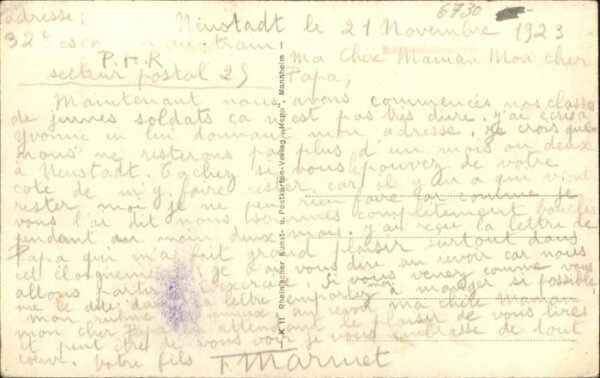 6730
adresse; Neustadt le 21 Novembre 1923
32e esca train
P.H.R
secteur postal 25
Ma Chère Maman Mon cher
Papa,
Maintenant nous avons commencés nos classes
de jeunes soldats ca n'est pas très dure. j'ai écris a
Yvonne en lui donnant mon adresse. je crois que
nous ne resterons pas plus d'un mois ou deux
à Neustadt. Tachez si vous pouvez de votre
coté de m'y faire rester car il y en a qui vont
rester moi je ne peu rien faire car comme je
vous l'ai dit nous sommes complètement bouclés
pendant au moin deux mois. j'ai reçu la lettre de
Papa qui m'a fait grand plaisir surtout dans
cet éloignement. je vous dire au revoir car nous
allons si vous venez comme vous
me le dites dans la lettre emportez moi à manger si possible
au revoir ma chère Maman
mon cher Papa attendant le plaisir de vous lires
et peut être de vous voir je vous embrasse de tout
coeur. Votre fils F. Marmet
K 11 Rheinischer Kunst- u. Postkarten-Verlag „Hepo", Mannheim